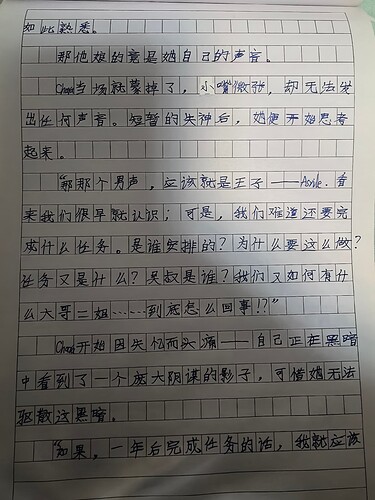 如此熟悉。
那他娘的竟是她自己的声音。
Chora当场就蒙掉了，小嘴微张，却无法发
出任何声音。短暂的失神后，她便开始思考
起来。
“那那个男声，应该就是王子——Asile．看
来我们很早就认识；可是，我们难道还要完
成什么任务。是谁安排的？为什么要这么做？
任务又是什么？吴叔是谁？我们又如何有什
么大哥二姐……到底怎么回事！？”
开始因失忆而头痛——自己正在黑暗
中看到了一个庞大阴谋的影子，可惜她无法
驱散这黑暗。
“如果，一年后完成任务的话，我就应该